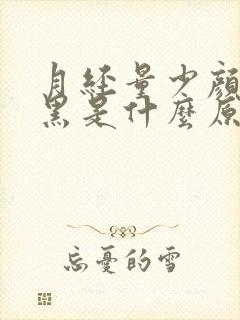 月經量少顏
黑是什麼原
忘憂的雪